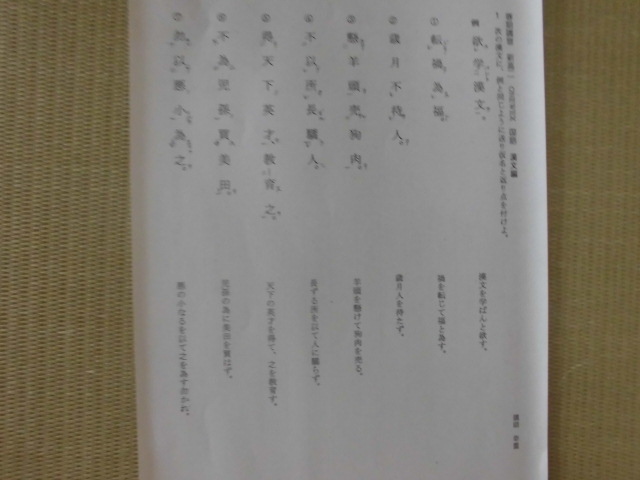 国語 漢文編
1 次の漢文に、例と同じように送り仮名と返り点を付けよ。
例 欲学漢文。 漢文を学ばんと欲す。
① 転禍為福。 禍を転じて福と為す。
② 歳月不待人。 歳月人を待たず。
③ 懸羊頭売狗肉。 羊頭を懸けて狗肉を売る。
④ 不以所長驕人。 長ずる所を以て人に驕らず。
⑤ 天下英才教育之。 天下の英才を得て、之を教育す。
⑥ 不為児孫買美田。 児孫の為に美田を買はず。
⑦ 以悪小為之。 悪の小なるを以て之を為す
講師